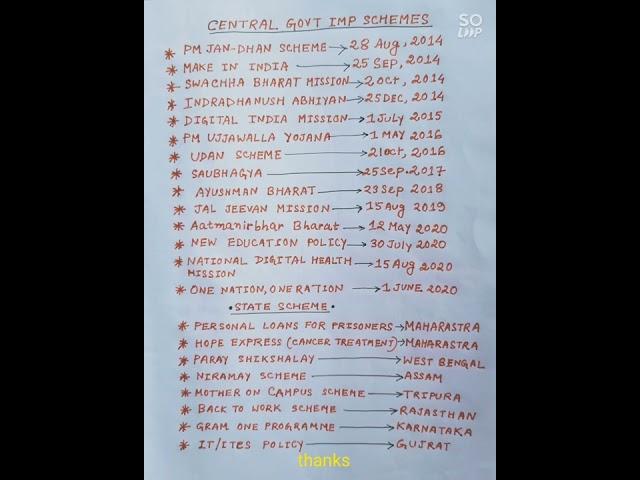 CENTRAL GOVT IMP SCHEMES
SO
LOOP
* PM JAN-DHAN SCHEME → 28 Aug, 2014
* MAKE IN INDIA → 25 SEP, 2014
* SWACHHA BHARAT MISSION → 2 Oct, 2014
* INDRADHANUSH ABHIYAN → 25 DEC, 2014
* DIGITAL INDIA MISSION → 1 July 2015
* PM UJJAWALLA YOJANA → 1 MAY 2016
* UDAN SCHEME → 21 Oct, 2016
* SAUBHAGYA → 25 Sep. 2017
* AYUSHMAN BHARAT → 23 Sep 2018
* JAL JEEVAN MISSION → 15 Aug 2019
* Aatmanirbhar Bharat → 12 May 2020
* NEW EDUCATION POLICY → 30 July 2020
* NATIONAL DIGITAL HEALTH → 15 Aug 2020
MISSION
* ONE NATION, ONE RATION → 1 JUNE 2020
• STATE SCHEME •
* PERSONAL LOANS FOR PRISONERS → MAHARASTRA
* HOPE EXPRESS (CANCER TREATMENT) → MAHARASTRA
* PARAY SHIKSHALAY → WEST BENGAL
* NIRAMAY SCHEME → ASSAM
* MOTHER ON CAMPUS SCHEME → TRIPURA
* BACK TO WORK SCHEME → RAJASTHAN
* GRAM ONE PROGRAMME → KARNATAKA
* IT/ITES POLICY → GUJRAT
thanks